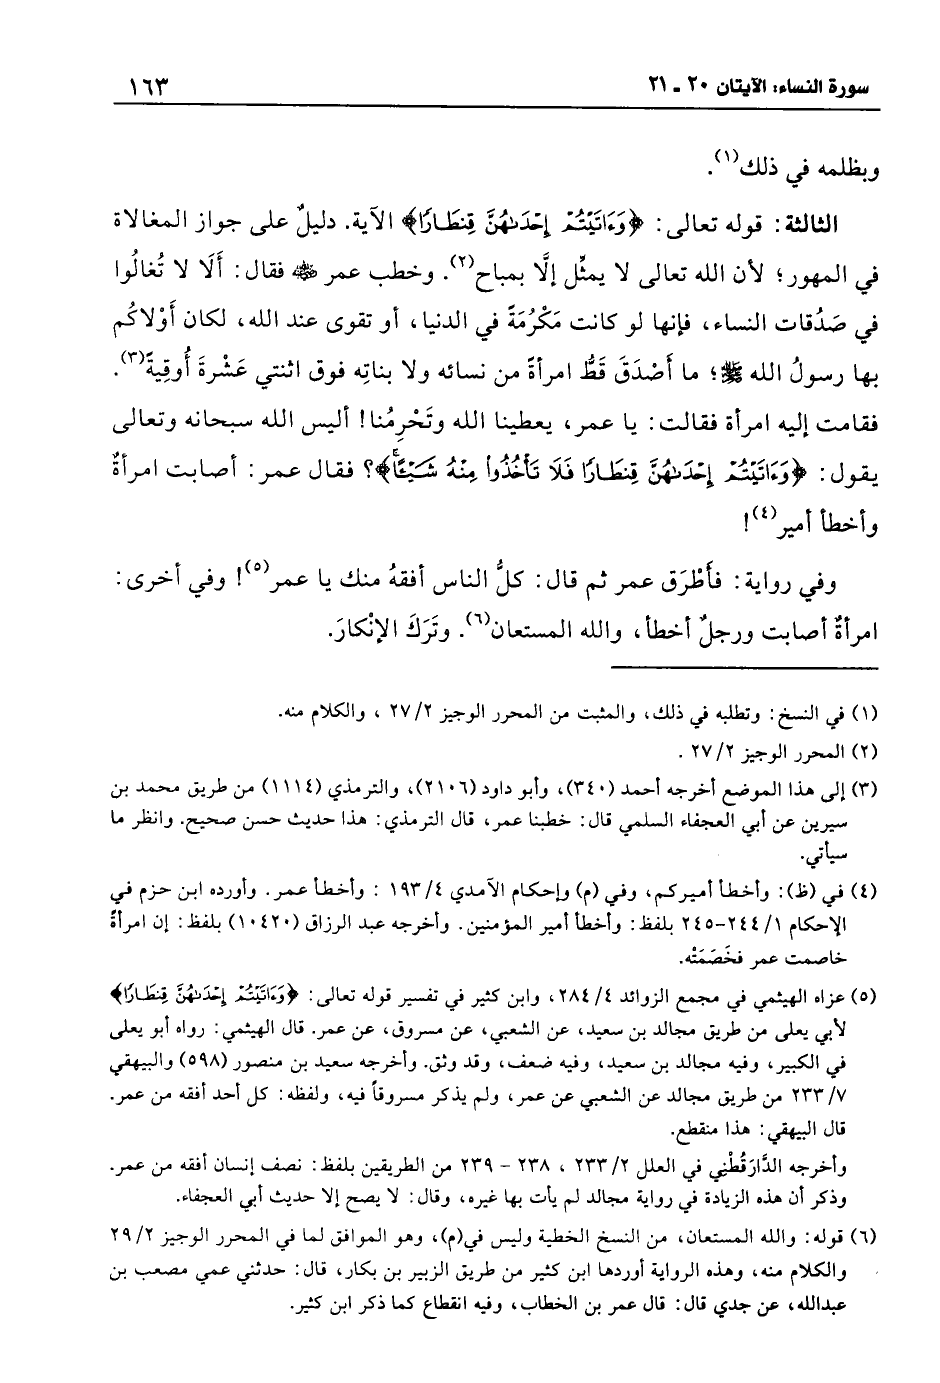 سورة النساء: الآيتان ٢٠ ـ ٢١
١٦٣
وبظلمه في ذلك(١).
الثالثة: قوله تعالى: ﴿وَءَاتَيْتُمْ إِحْدَىٰهُنَّ قِنطَارًا﴾ الآية. دليلٌ على جواز المغالاة
في المهور؛ لأن الله تعالى لا يمثِّل إلَّا بمباح(٢). وخطب عمر ﷺ فقال: أَلَا لا تُغالُوا
في صَدُقات النساء، فإنها لو كانت مَكْرُمَةً في الدنيا، أو تقوى عند الله، لكان أَوْلاكُم
بها رسولُ الله ﷺ؛ ما أَصْدَقَ قَطُّ امرأةً من نسائه ولا بناتِه فوق اثنتي عَشْرةَ أُوقِيةً(٣).
فقامت إليه امرأة فقالت: يا عمر، يعطينا الله وتَحْرِمُنا! أليس الله سبحانه وتعالى
يقول: ﴿وَءَاتَيْتُمْ إِحْدَىٰهُنَّ قِنطَارًا فَلَا تَأْخُذُوا۟ مِنْهُ شَيْـًٔا﴾؟ فقال عمر: أصابت امرأةٌ
وأخطأ أمير(٤)!
وفي رواية: فأَطْرَق عمر ثم قال: كلُّ الناس أفقهُ منك يا عمر(٥)! وفي أخرى:
امرأةٌ أصابت ورجلٌ أخطأ، والله المستعان(٦). وتَرَكَ الإنْكارَ.
(١) في النسخ: وتطلبه في ذلك، والمثبت من المحرر الوجيز ٢/ ٢٧ ، والكلام منه.
(٢) المحرر الوجيز ٢/ ٢٧ .
(٣) إلى هذا الموضع أخرجه أحمد (٣٤٠)، وأبو داود (٢١٠٦)، والترمذي (١١١٤) من طريق محمد بن
سيرين عن أبي العجفاء السلمي قال: خطبنا عمر، قال الترمذي: هذا حديث حسن صحيح. وانظر ما
سيأتي.
(٤) في (ظ): وأخطأ أميركم، وفي (م) وإحكام الآمدي ٤/ ١٩٣ : وأخطأ عمر. وأورده ابن حزم في
الإحكام ١/ ٢٤٤-٢٤٥ بلفظ: وأخطأ أمير المؤمنين. وأخرجه عبد الرزاق (١٠٤٢٠) بلفظ: إن امرأةً
خاصمت عمر فخَصَمَتْه.
(٥) عزاه الهيثمي في مجمع الزوائد ٤/ ٢٨٤، وابن كثير في تفسير قوله تعالى: ﴿وَءَاتَيْتُمْ إِحْدَىٰهُنَّ قِنطَارًا﴾
لأبي يعلى من طريق مجالد بن سعيد، عن الشعبي، عن مسروق، عن عمر. قال الهيثمي: رواه أبو يعلى
في الكبير، وفيه مجالد بن سعيد، وفيه ضعف، وقد وثق. وأخرجه سعيد بن منصور (٥٩٨) والبيهقي
٧/ ٢٣٣ من طريق مجالد عن الشعبي عن عمر، ولم يذكر مسروقاً فيه، ولفظه: كل أحد أفقه من عمر.
قال البيهقي: هذا منقطع.
وأخرجه الدَّارَقُطْنِي في العلل ٢/ ٢٣٣ ، ٢٣٨ - ٢٣٩ من الطريقين بلفظ: نصف إنسان أفقه من عمر.
وذكر أن هذه الزيادة في رواية مجالد لم يأت بها غيره، وقال: لا يصح إلا حديث أبي العجفاء.
(٦) قوله: والله المستعان، من النسخ الخطية وليس في(م)، وهو الموافق لما في المحرر الوجيز ٢/ ٢٩
والكلام منه، وهذه الرواية أوردها ابن كثير من طريق الزبير بن بكار، قال: حدثني عمي مصعب بن
عبدالله، عن جدي قال: قال عمر بن الخطاب، وفيه انقطاع كما ذكر ابن كثير.